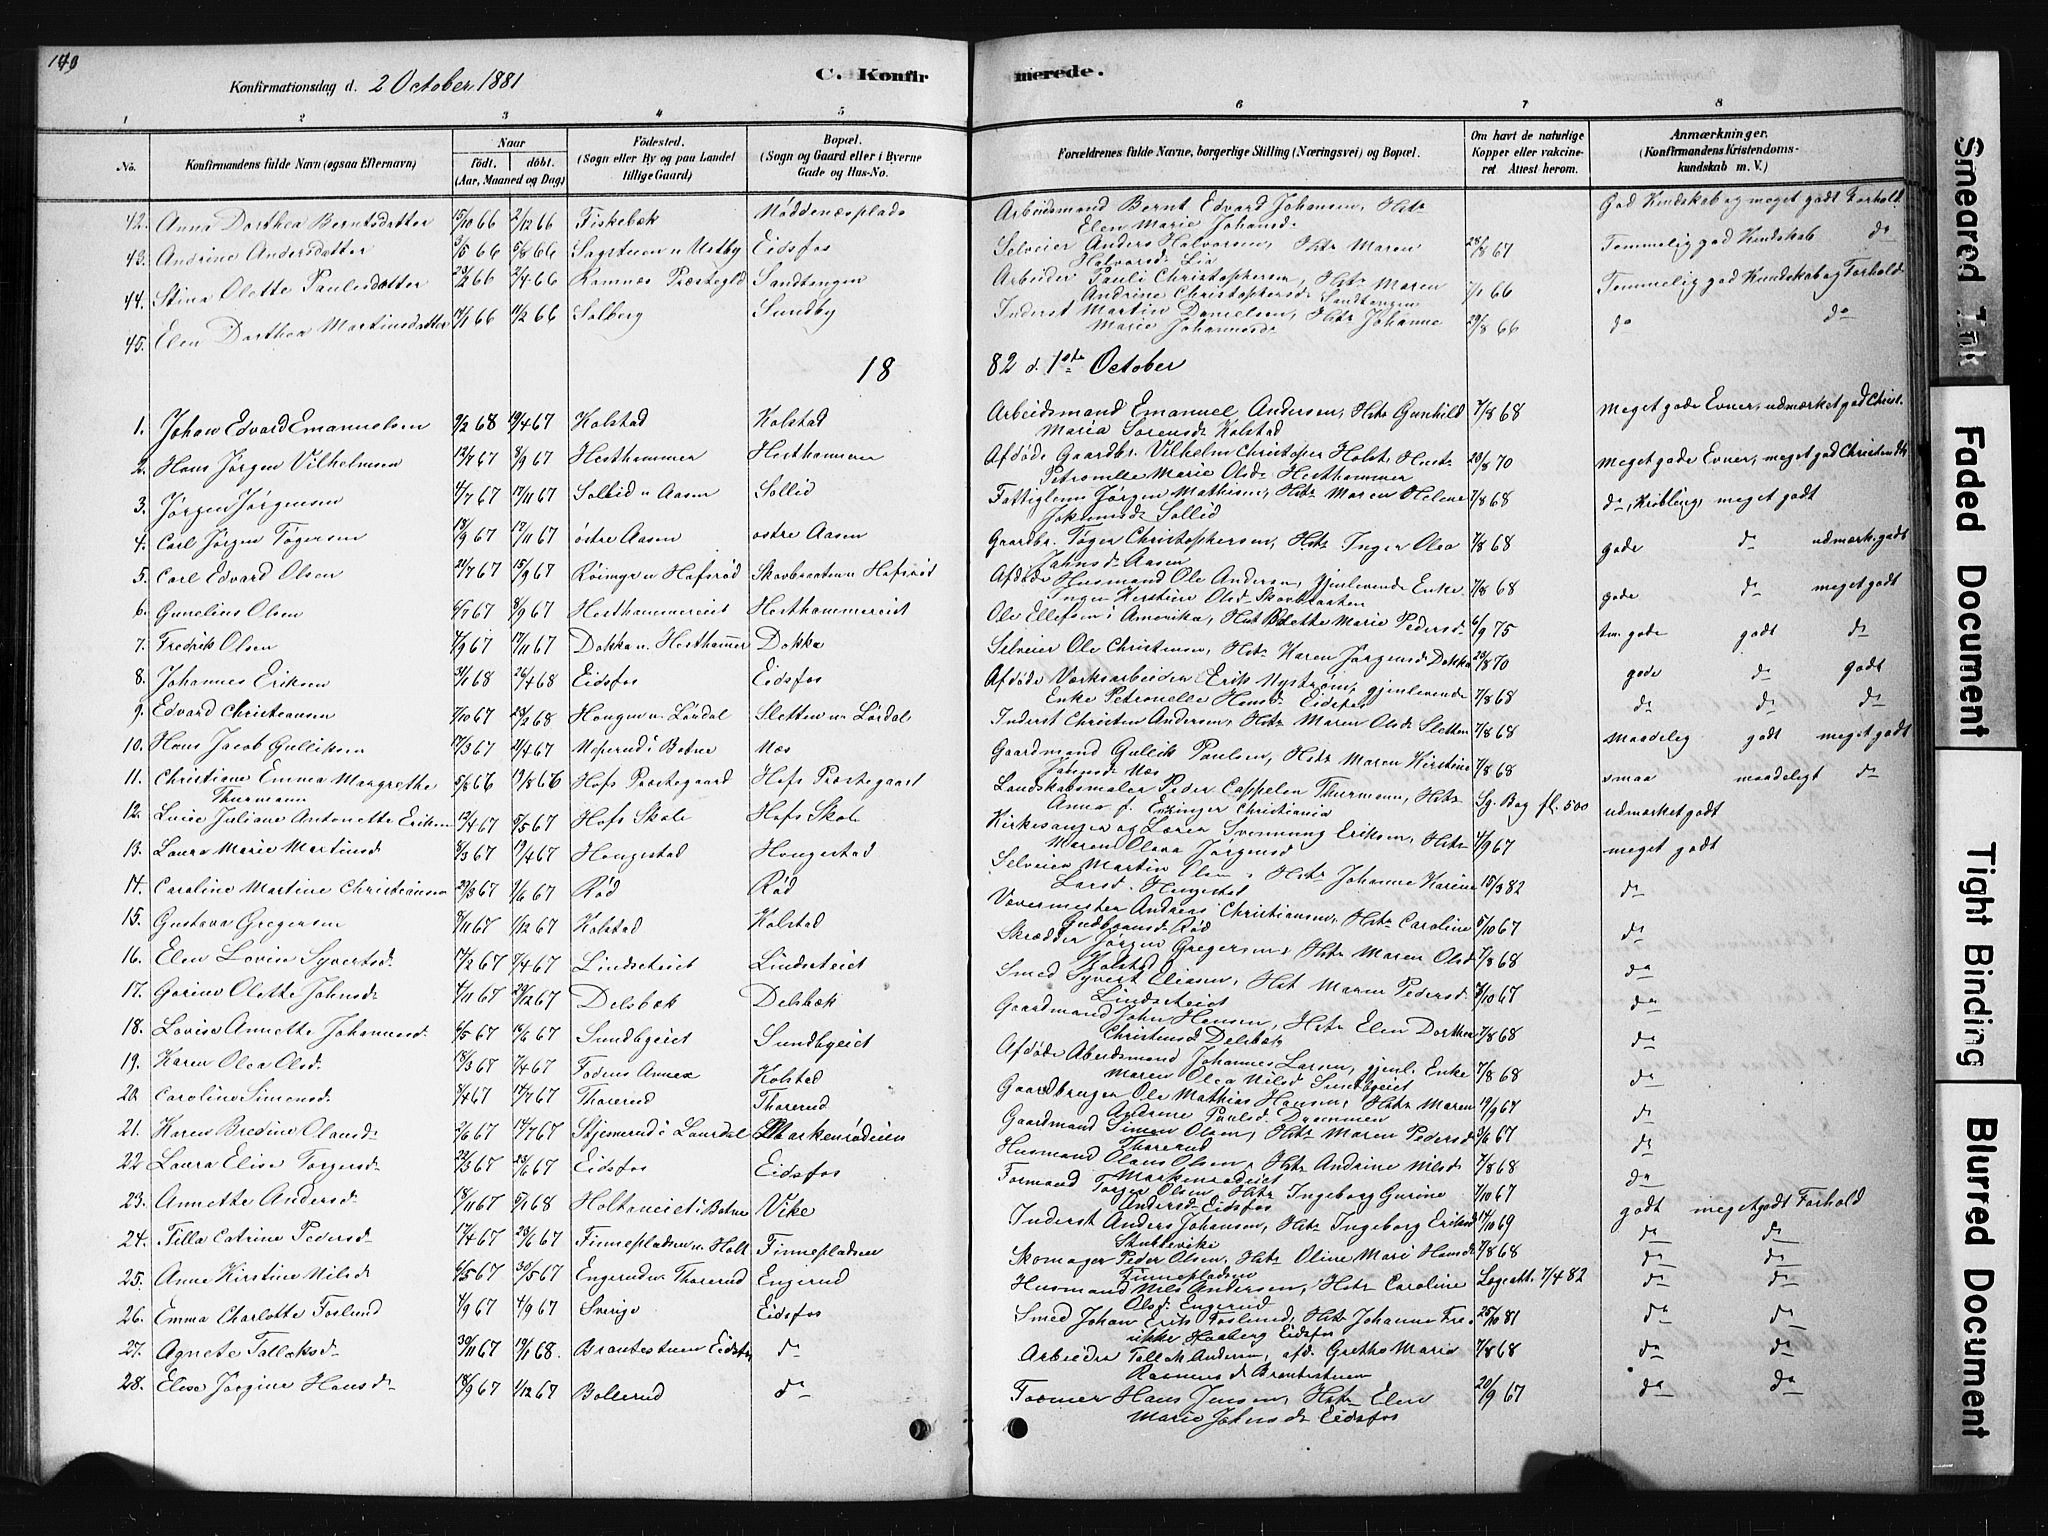 149
Konfirmationsdag d. 2 October 1881
C. Konfir
merede.
1 2 3 4 5 6 7 8
No. Konfirmandens fulde Navn (ogsaa Efternavn) Naar födt. döbt. (Aar, Maaned og Dag) Födested. (Sogn eller By og paa Landet tillige Gaard) Bopæl. (Sogn og Gaard eller i Byerne Gade og Hus-No. Forældrenes fulde Navne, borgerlige Stilling (Næringsvei) og Bopæl. Om havt de naturlige Kopper eller vakcineret Attest herom. Anmærkninger. (Konfirmandens Kristendomskundskab m. V.)
42. Anne Dorthea Berntsdatter 15/10 66 2/12 66 Fiskebæk Nöddenæsplads Arbeidsmand Bernt Edvard Johansen, Hstr God Kundskab og meget godt Forhold
Elen Marie Johansd.
43. Andrine Andersdatter 3/5 66 5/8 66 Sagstuen u Ustby Eidsfos Selveier Anders Halvorsen, Hstr Maren 28/8 67 Temmelig god Kundskab do
Halvorsd. Lia
44. Stina Olette Paulesdatter 23/2 66 2/4 66 Ramnes Præstegld Sandtangen Arbeider Pauli Christophersen, Hstr Maren 1/1 66 Temmelig god Kundskab og Forhold
Andrine Christophersd. Sandtangen
45. Elen Dorthea Martinsdatter 17/1 66 11/2 66 Solberg Sundby Inderst Martin Danielsen, Hstr Johanne 29/8 66 do do
Marie Johannesd.
18 82 d. 1ste October
1. Johan Edvard Emanuelsen 9/2 68 19/4 67 Kolstad Kolstad Arbeidsmand Emanuel Andersen, Hstr Gunhild 7/8 68 Meget gode Evner, udmærket god Christ.
Maria Sorensd. Kolstad
2. Hans Jörgen Vilhelmsen 12/7 67 8/9 67 Hesthammer Hesthammer Afdöde Gaardbr. Vilhelm Christoper Holst, Hust. 23/8 70 Meget gode Evner, meget god Christendk
Petronelle Marie Olsd. Hesthammer
3. Jörgen Jörgensen 4/7 67 17/11 67 Sollid u Aasen Sollid Fattiglem Jörgen Mathesen, Hstr Maren Helene 7/8 68 do, Kröbling, meget godt
Johannesd. Sollid
4. Carl Jörgen Tögersen 18/9 67 17/11 67 östre Aasen ostre Aasen Gaardbr. Töger Christophersen, Hstr Inger Olea 7/8 68 gode do udmærk. godt
Jahnsd. Aasen
5. Carl Edvard Olsen 21/7 67 15/9 67 Röimyr u Hafsröd Skovbraaten u Hafsröd Afdöde Husmand Ole Andersen, gjenlevende Enke 7/8 68 gode do meget godt
Inger Kerstine Olsd. Skovbraaten
6. Gunelius Olsen 4/7 67 8/9 67 Hesthammereiet Hesthammereiet Ole Ellefsen i Amerika, Hst Bolette Marie Pedersd. 6/9 75 tm. gode godt do
7. Fredrik Olsen 4/9 67 17/11 67 Dokka u. Hesthammer Dokka Selveier Ole Christensen, Hstr Karen Jörgensd. Dokka 23/8 70 gode do godt
8. Johannes Eriksen 31/1 68 26/4 68 Eidsfos Eidsfos Afdöde Værksarbeider Erik Nyström, gjenlevende 7/8 68 do do do
Enke Petronelle Hansd. Eidsfos
9. Edvard Christensen 7/10 67 23/2 68 Hougen u. Lördal Sletten u. Lördal Inderst Christen Andersen, Hstr Maren Olsd. Sletten 7/8 68 maadelig godt meget godt
10. Hans Jacob Gulliksen 17/3 67 21/4 67 Meperud i Botne Næs Gaardmand Gullik Paulsen, Hstr Maren Kirstine 7/8 68 smaa maadeligt do
Jahnsd. Næs
11. Christiane Emma Margrethe 5/8 66 19/8 66 Hofs Præstegaard Hofs Præstegaard Landskabsmaler Peder Cappelen Thurmann, Hstr Sg. Bog fl. 500 udmærket godt
Thurmann
Anna f. Enzinger Christiania
12. Lovise Juliane Antonette Eriksen 12/4 67 5/5 67 Hofs Skole Hofs Skole Kirkesanger og Lærer Svenning Eriksen, Hstr 4/9 67 meget godt
Maren Olava Jörgensd.
13. Laura Marie Martinsd. 8/3 67 19/4 67 Hougestad Hougestad Selveier Martin Olsen, Hstr Johanne Karine 15/3 82 do
Larsd. Hougestad
14. Caroline Martine Christiansen 29/3 67 1/6 67 Röd Röd Vævermester Andreas Christiansen, Hstr Caroline 5/10 67 do
Gudbrandsd. Röd
15. Gustava Gregersen 8/11 67 1/12 67 Kolstad Kolstad Skrædder Jörgen Gregersen, Hstr Maren Olsd 7/8 68 do
Kolstad
16. Elen Lovise Syvertsd. 17/2 67 7/4 67 Lindseteiet Lindseteiet Smed Syvert Eliasen, Hst Maren Pedersd. 3/10 67 do
Lindseteiet
17. Gorine Olette Jahnsd. 4/11 67 29/12 67 Delsbæk Delsbæk Gaardmand John Hansen, Hstr Elen Dorthea 7/8 68 do
Christensd Delsbæk
18. Lovise Annette Johannesd. 4/5 67 16/6 67 Sundbyeiet Sundbyeiet Afdöde Abeidsmand Johannes Larsen, gjenl. Enke 7/8 68 do
Maren Olea Nilsd Sundbyeiet
19. Karen Olea Olsd. 18/3 67 7/4 67 Fodens Annex Kolstad Gaardbruger Ole Mathias Hansen, Hstr Maren 19/9 67 do
Andrine Paulsd.
20. Caroline Simensd. 8/4 67 14/7 67 Thorerud Thorerud Gaardmand Simen Olsen, Hstr Maren Pedersd. 3/6 67 do
Thorerud
21. Karen Bredine Olausd. 2/6 67 14/7 67 Stjemerud i Laurdal Markenrödeien Husmand Olaus Olsen, Hstr Andrine Nilsd 7/8 68 do
Markenrödeiet
22. Laura Elise Torgersd. 22/3 67 23/6 67 Eidsfos Eidsfos Formand Torger Olsen, Hstr Ingeborg Gurine 7/10 67 godt meget godt Forhold
Andersd. Eidsfos
23. Annette Andersd. 18/11 67 5/1 68 Holtaneiet i Botne Vike Inderst Anders Johansen, Hstr Ingeborg Eriksd 17/10 69 do do
Stubbevike
24. Tilla Catrine Pedersd. 17/4 67 23/6 67 Finnepladsen u. Holt Finnepladsen Skomager Peder Olsen, Hstr Oline Mari Hansd 7/8 68 do do
Finnepladsen
25. Anne Kirstine Nilsd. 6/5 67 30/5 67 Engerud u. Thorerud Engerud Husmand Nils Andersen, Hstr Caroline Lægeatt. 7/4 82 do do
Olsd. Engerud
26. Emma Charlotte Foslund 4/9 67 4/9 67 Sverige Eidsfos Smed Johan Erik Foslund, Hstr Johanne Fred 25/10 81 do do
rikke Haaberg Eidsfos
27. Agnete Tolleksd. 30/11 67 19/1 68. Brantestuen Eidsfos do Arbeider Tollek Andersen, afd. Grethe Marie 7/8 68 do do
Rasmusd Brantestuen
28. Elise Jörgine Hansd. 18/9 67 1/12 67 Bollerud do Formær Hans Jensen, Hstr Elen 20/9 67 do do
Marie Johnsd. Eidsfos
Smeared Ink
Faded Document
Tight Binding
Blurred Document